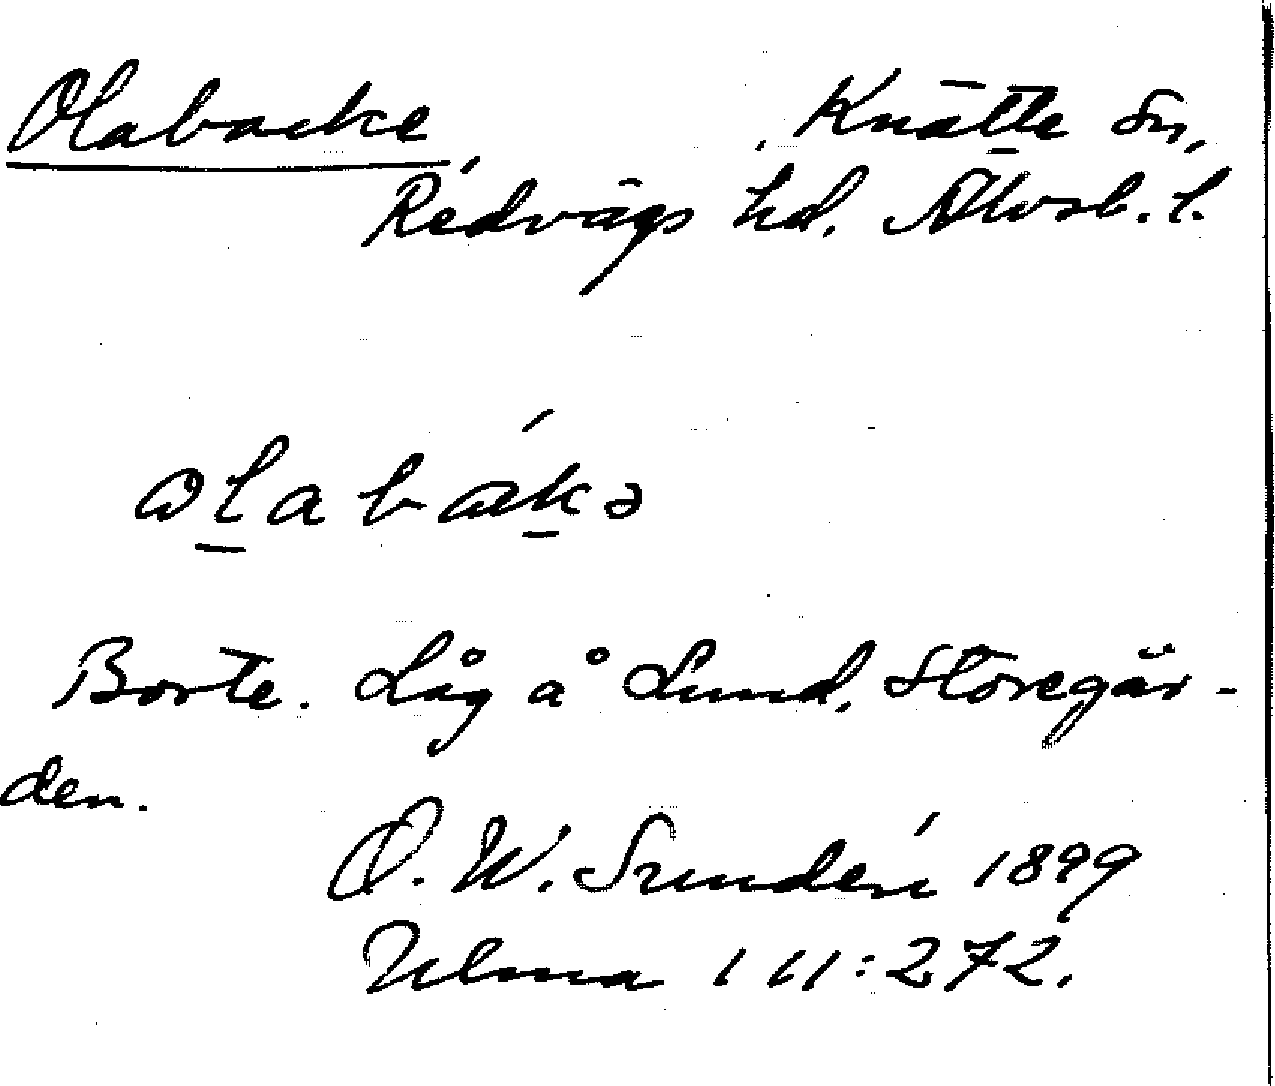 Olabacke Knätte sn,
Redvägs hd. Älvsb. l.
ɷlabákə
Borte. Låg å Lund, Storegår-
den.
O. W. Sundén 1899
Ulma 111:272.